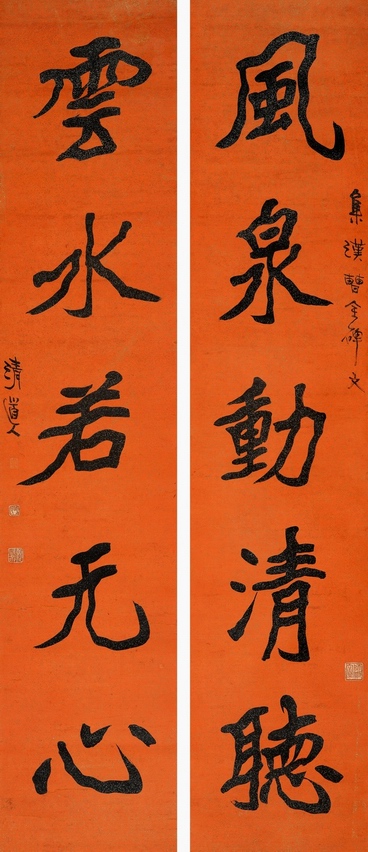 集漢曹全碑文
風泉動清聽
雲水若无心
清道人